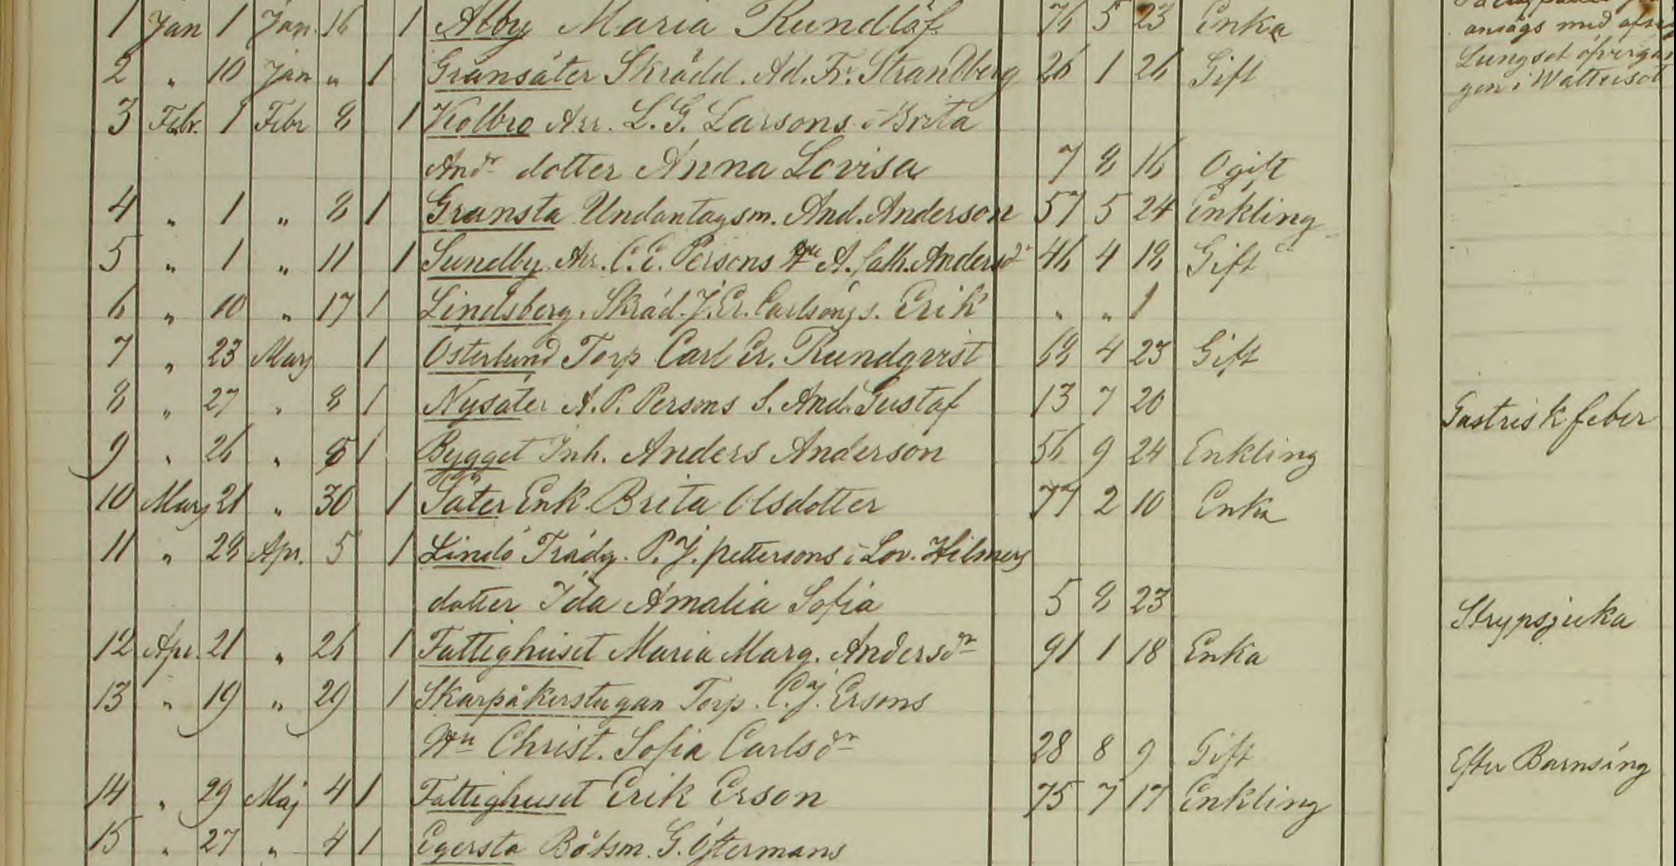 1 Jan 1 Jan. 16 1 Alby Maria Rundlöf 76 5 23 Enka
ansågs med
2 " 10 Jan " 1 Gransäter Skrädd. Ad. Fr. Strandberg 26 1 26 Gift
Lungsot öfvergå
gen i Wattusot
3 Febr. 1 Febr 8 1 Kolbro Arr. L. G. Larsons o Brita
And.dr dotter Anna Lovisa 7 8 16 Ogift
4 " 1 " 8 1 Gransta Undantagsm. And. Anderson 57 5 24 Enkling
5 " 1 " 11 1 Sundby Arr. C. E. Persons Hu A. Cath. Andersdr 46 4 18 Gift
6 " 10 " 17 1 Lindsberg. Skräd. J. Er. Carlsons s. Erik " " 1
7 " 23 Mars 1 Österlund Torp Carl Er. Rundqvist 68 4 23 Gift
8 " 27 " 8 1 Nysäter A. P. Persons S. And. Gustaf 13 7 20
Gastrisk feber
9 " 26 " 1 Bygget Inh. Anders Anderson 56 9 24 Enkling
10 Mars 21 " 30 1 Säter Enk. Brita Olsdotter 77 2 10 Enka
11 " 28 Apr. 5 1 Lindö Trädg. P. J. Pettersons o Lov. Hilmers
dotter Ida Amalia Sofia 5 8 23
Strypsjuka
12 Apr. 21 " 26 1 Fattighuset Maria Marg. Andersdr 91 1 18 Enka
13 " 19 " 29 1 Skarpåkerstugan Torp. C. J. Ersons
Hu Christ. Sofia Carlsdr 28 8 9 Gift
Efter Barnsäng
14 " 29 Maj 4 1 Fattighuset Erik Erson 75 7 17 Enkling
15 " 27 " 4 1 Egersta Båtsm. G. Östermans